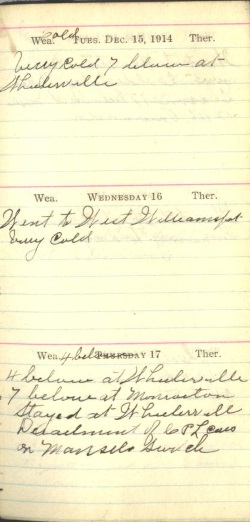 Wea. Cold TUES. DEC. 15, 1914 Ther.
Very Cold 7 below at
Wheelerville
Wea. WEDNESDAY 16 Ther.
Went to West Williamsport
Very Cold
Wea. 4 below THURSDAY 17 Ther.
4 below at Wheelerville
7 below at Monroeton
Stayed at Wheelerville
Derailment of 6 P L cars
on Mansels Switch